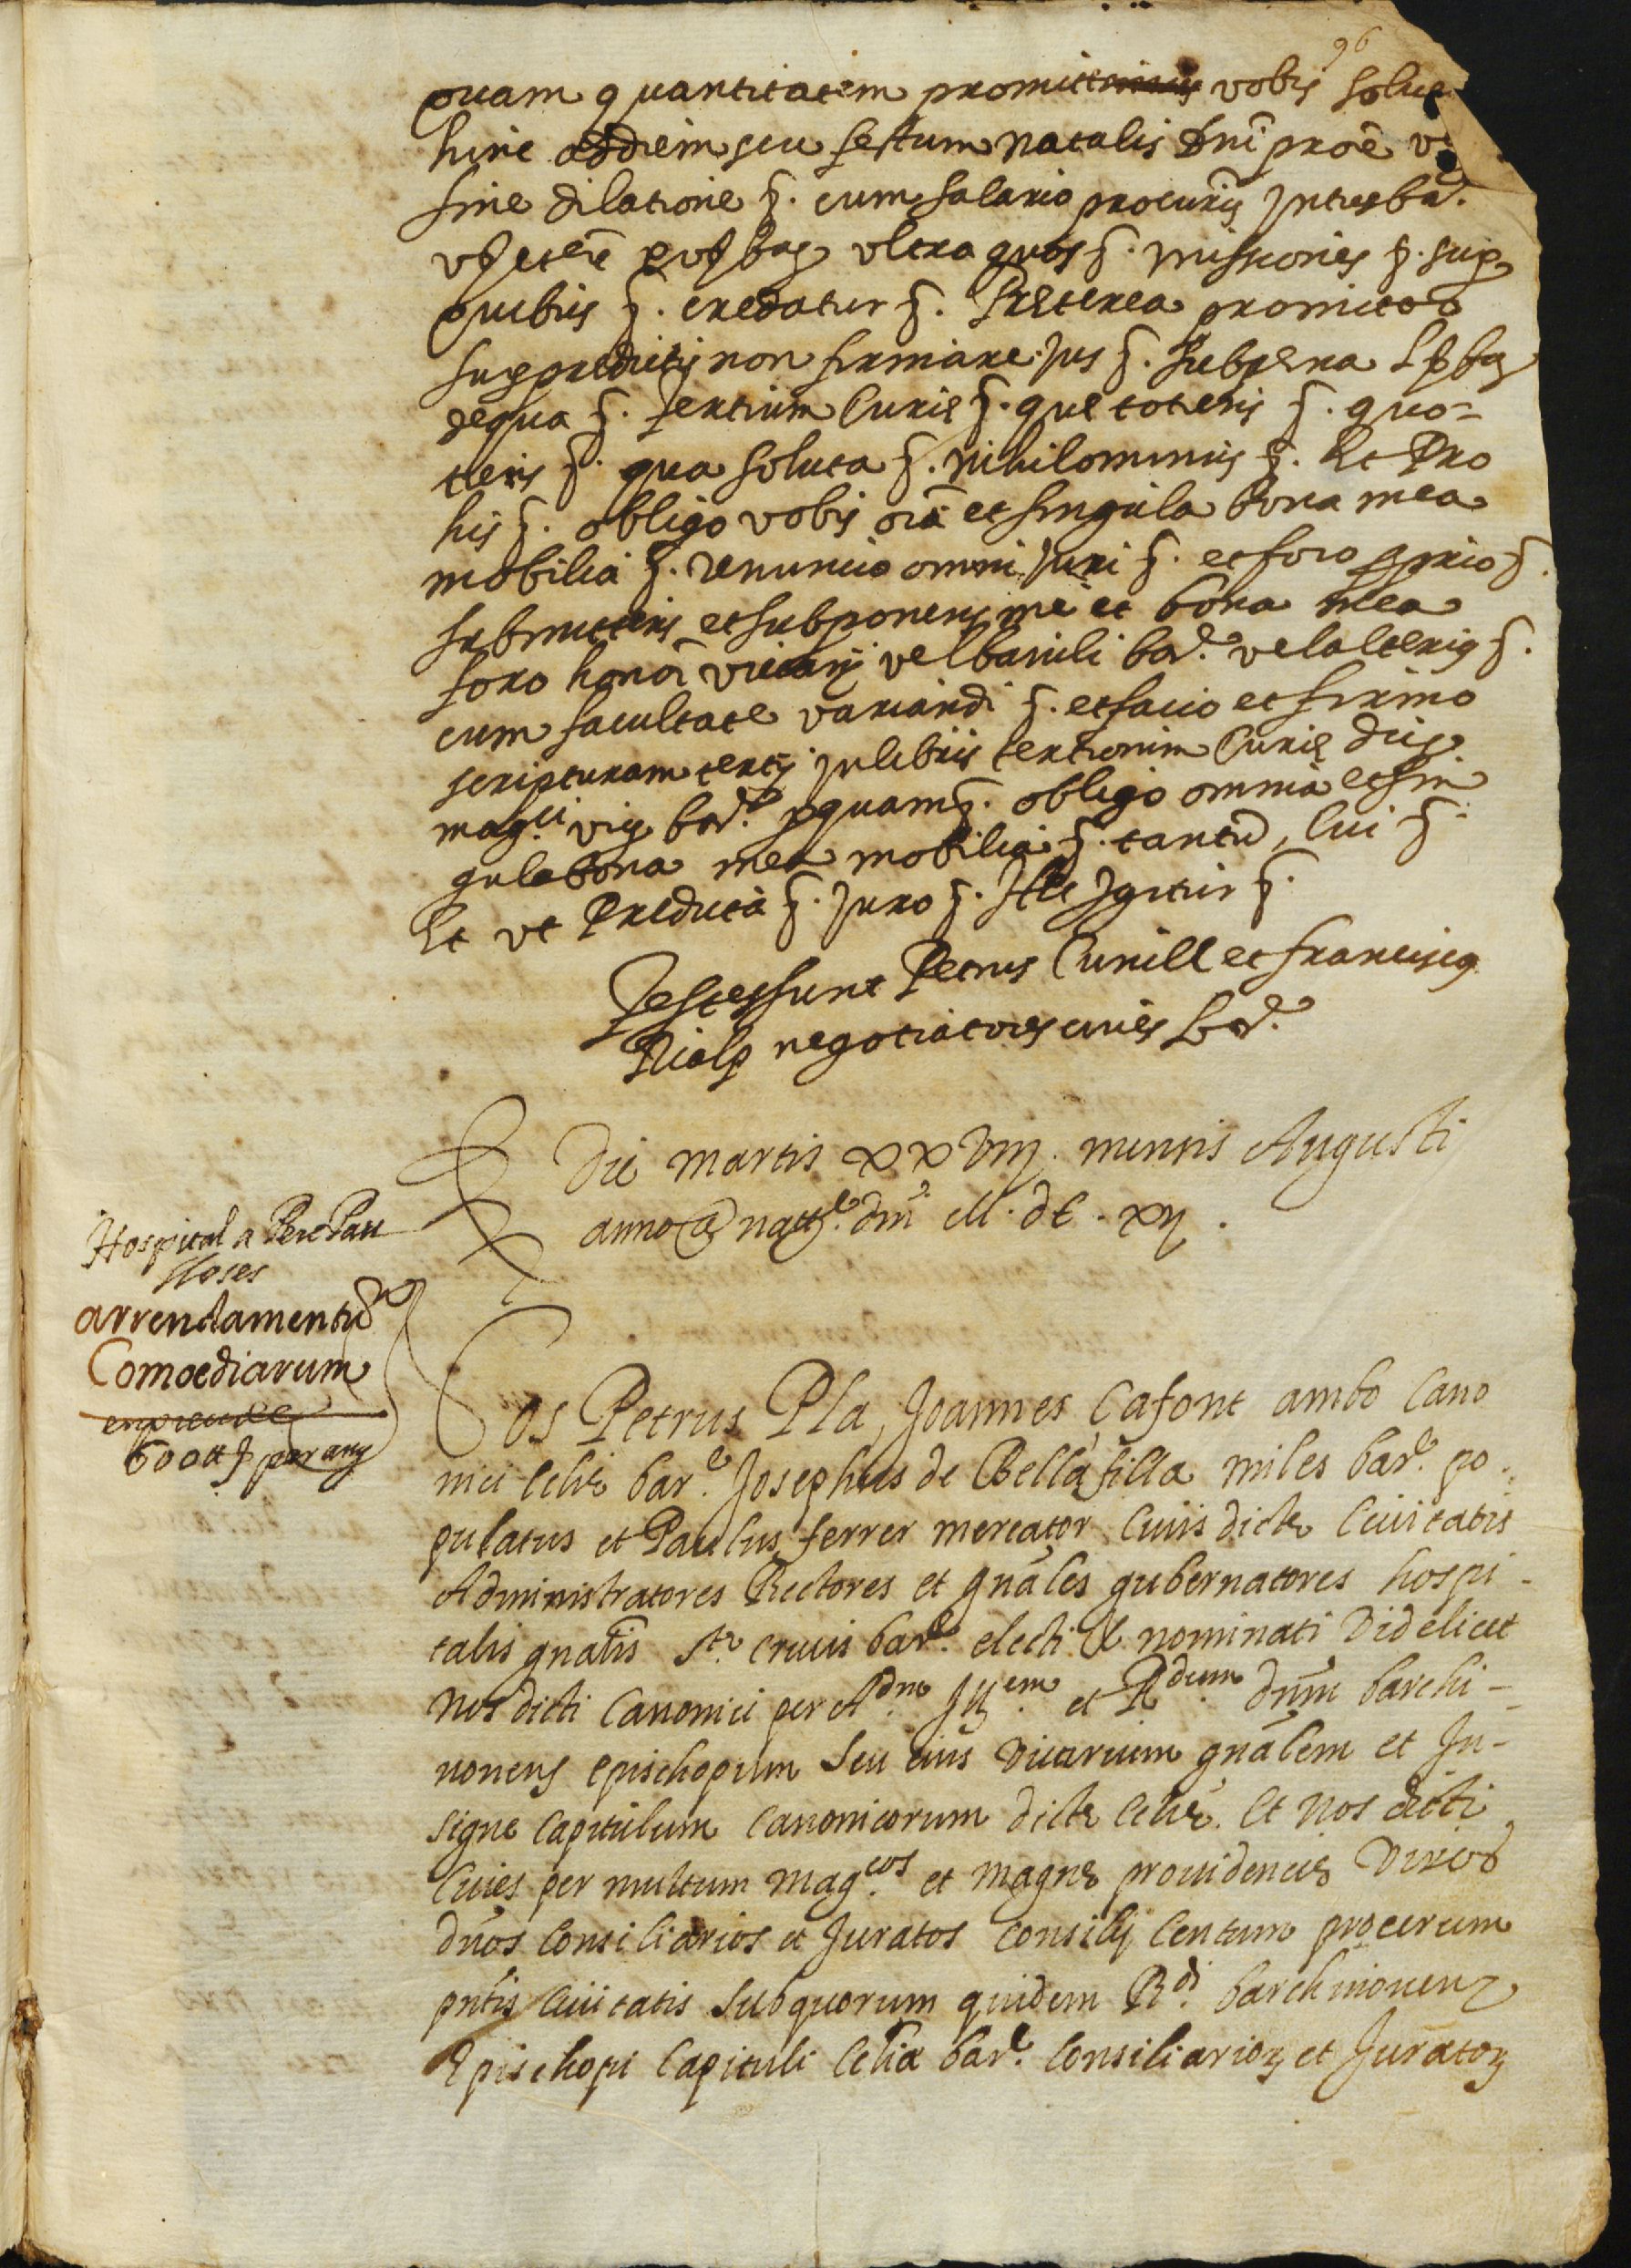 96
quam quantitatem promitto vobis solue
hinc ad diem seu festum natalis dni proxe v
sine dilatione §. cum salario procuris intus bar.
ultra quos §. missiones §. sup
quibus §. credatur §. Preterea promitto
sup predictis non firmare jus §. sub pena
de qua §. tertium Curie §. que totiens §. quo-
tiens §. qua soluta §. nihilominus §. Et Pro
his §. obligo vobis oia et singula bona mea
mobilia §. renuncio omni juri §. et foro prio §.
submittens et subponens me et bona mea
foro honor vicarij vel baiuli bar. vel alterius §.
cum facultate variandi §. et facio et firmo
scripturam tertij in libris tertionum Curie
magci vicj bar. p quam §. obligo omnia et sin
gula bona mea mobilia §. tantu, Cui §.
Et ut Predicta §. juro §. Hec igitur §.
Testes sunt Petrus Cunill et franciscus
Rialp negotiatores cives bar.
Die martis xxviij. mensis Augusti
anno a natte. dni M. dC. xij.
Hospital a Pere Pau
Hoses
arrendamentu
Comoediarum
600 ₶ per any
Nos Petrus Pla, Joannes Çafont ambo Cano
nici bar.e Josephus de Bellafilla miles bar.e po-
pulatus et Paulus ferrer mercator Civis dicte Civitatis
Administratores Rectores et gnales gubernatores hospi-
talis gnalis Ste crucis bare. electi & nominati Videlicet
nos dicti Canonici per Adm. Illem. et Rdum. dnm barchi-
nonens Epischopum seu eius Vicarium gnalem et In-
signe Capitulum Canonicorum dicte. Et Nos dicti
Cives per multum magcos. et magne providencie Viros
dnos Consiliarios et Juratos Consilij Centum procerum
pntis Civitatis sub quorum quidem Rdi. barchinonen
Epischopi Capituli bare. Consiliarioꝝ et Juratoꝝ